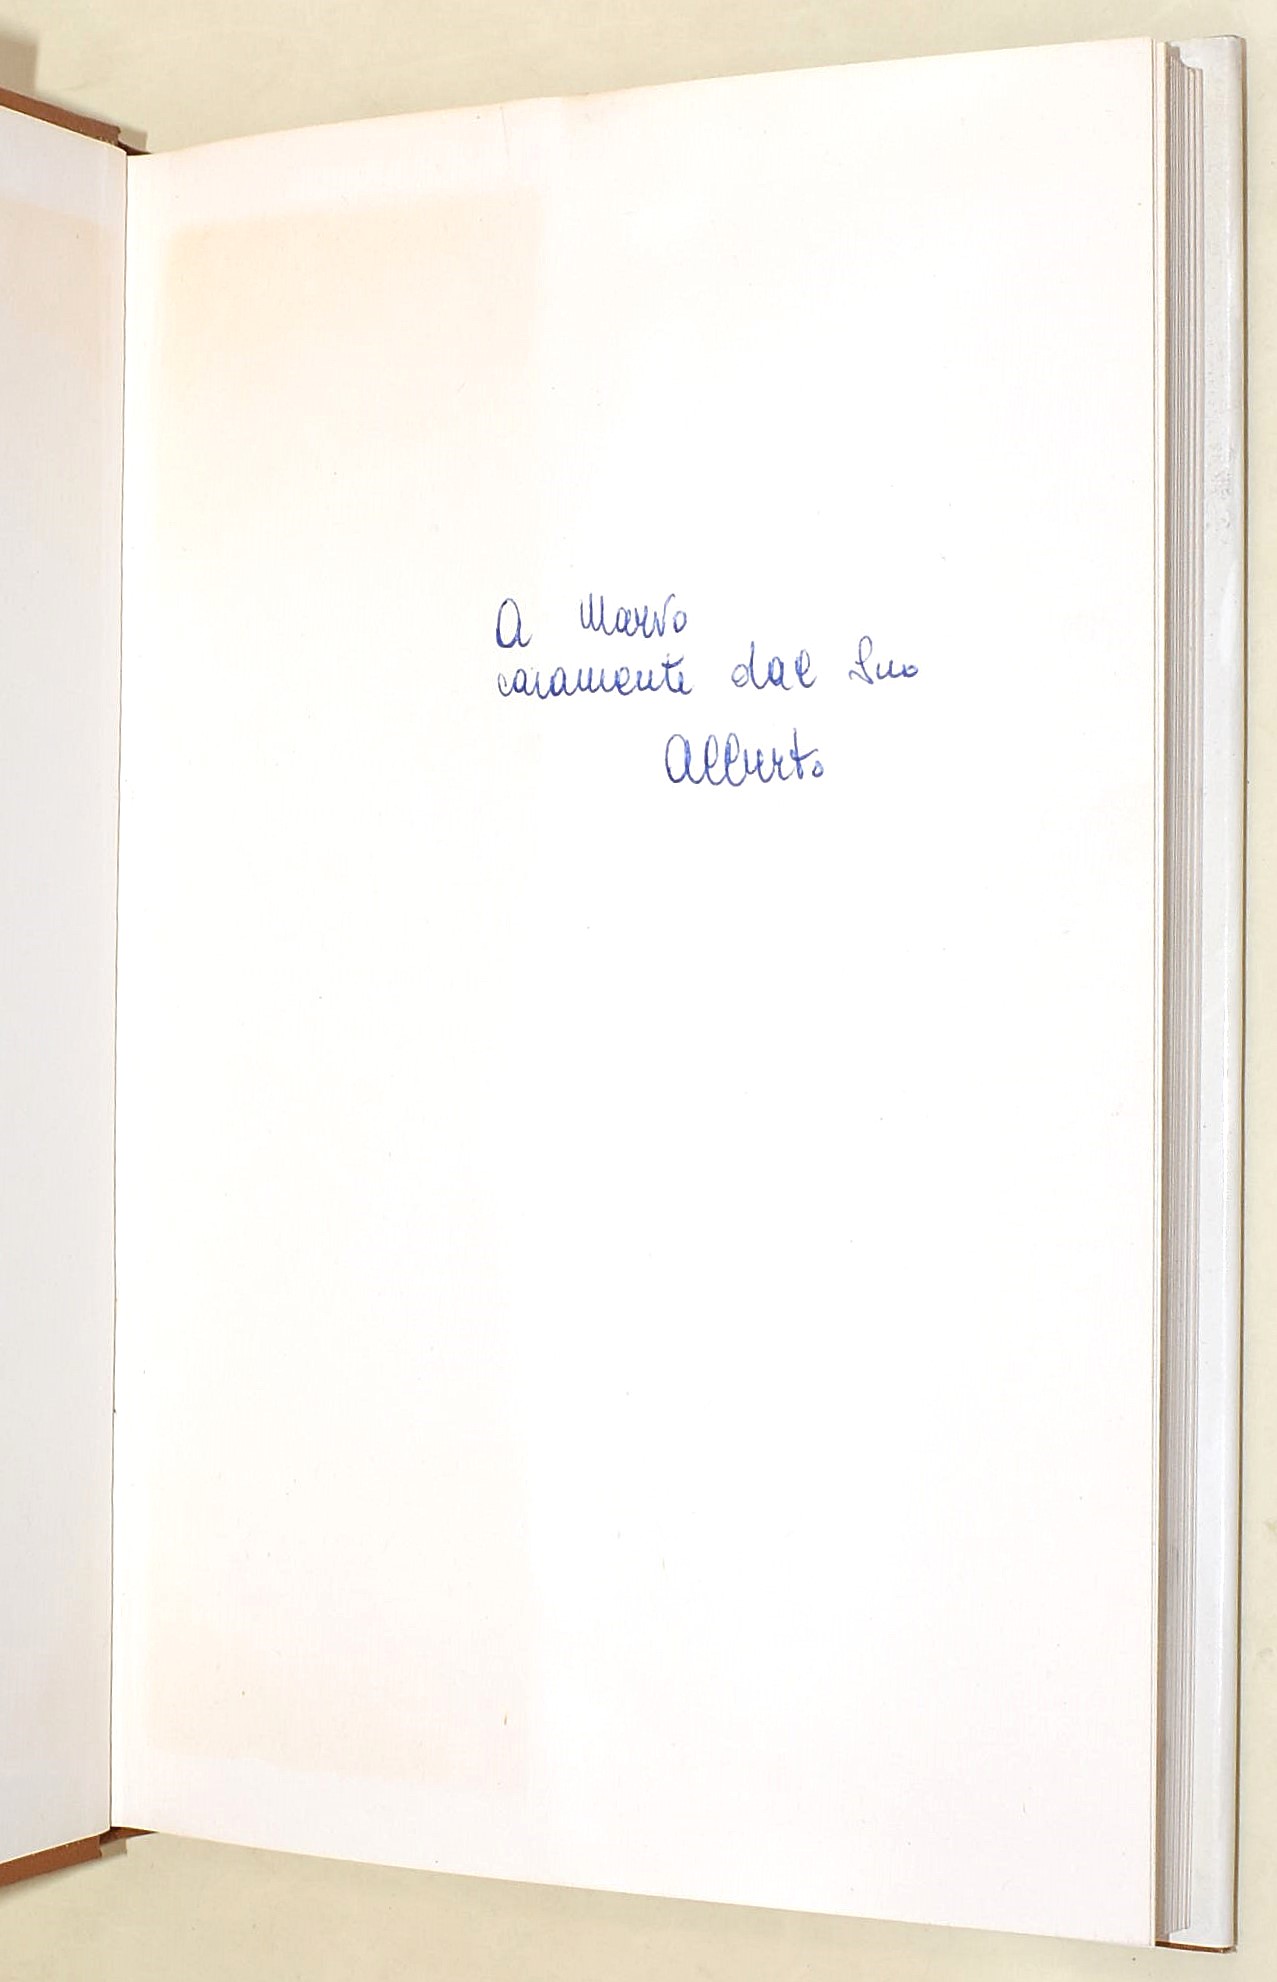 A Marzo
caramente dal Suo
Alberto